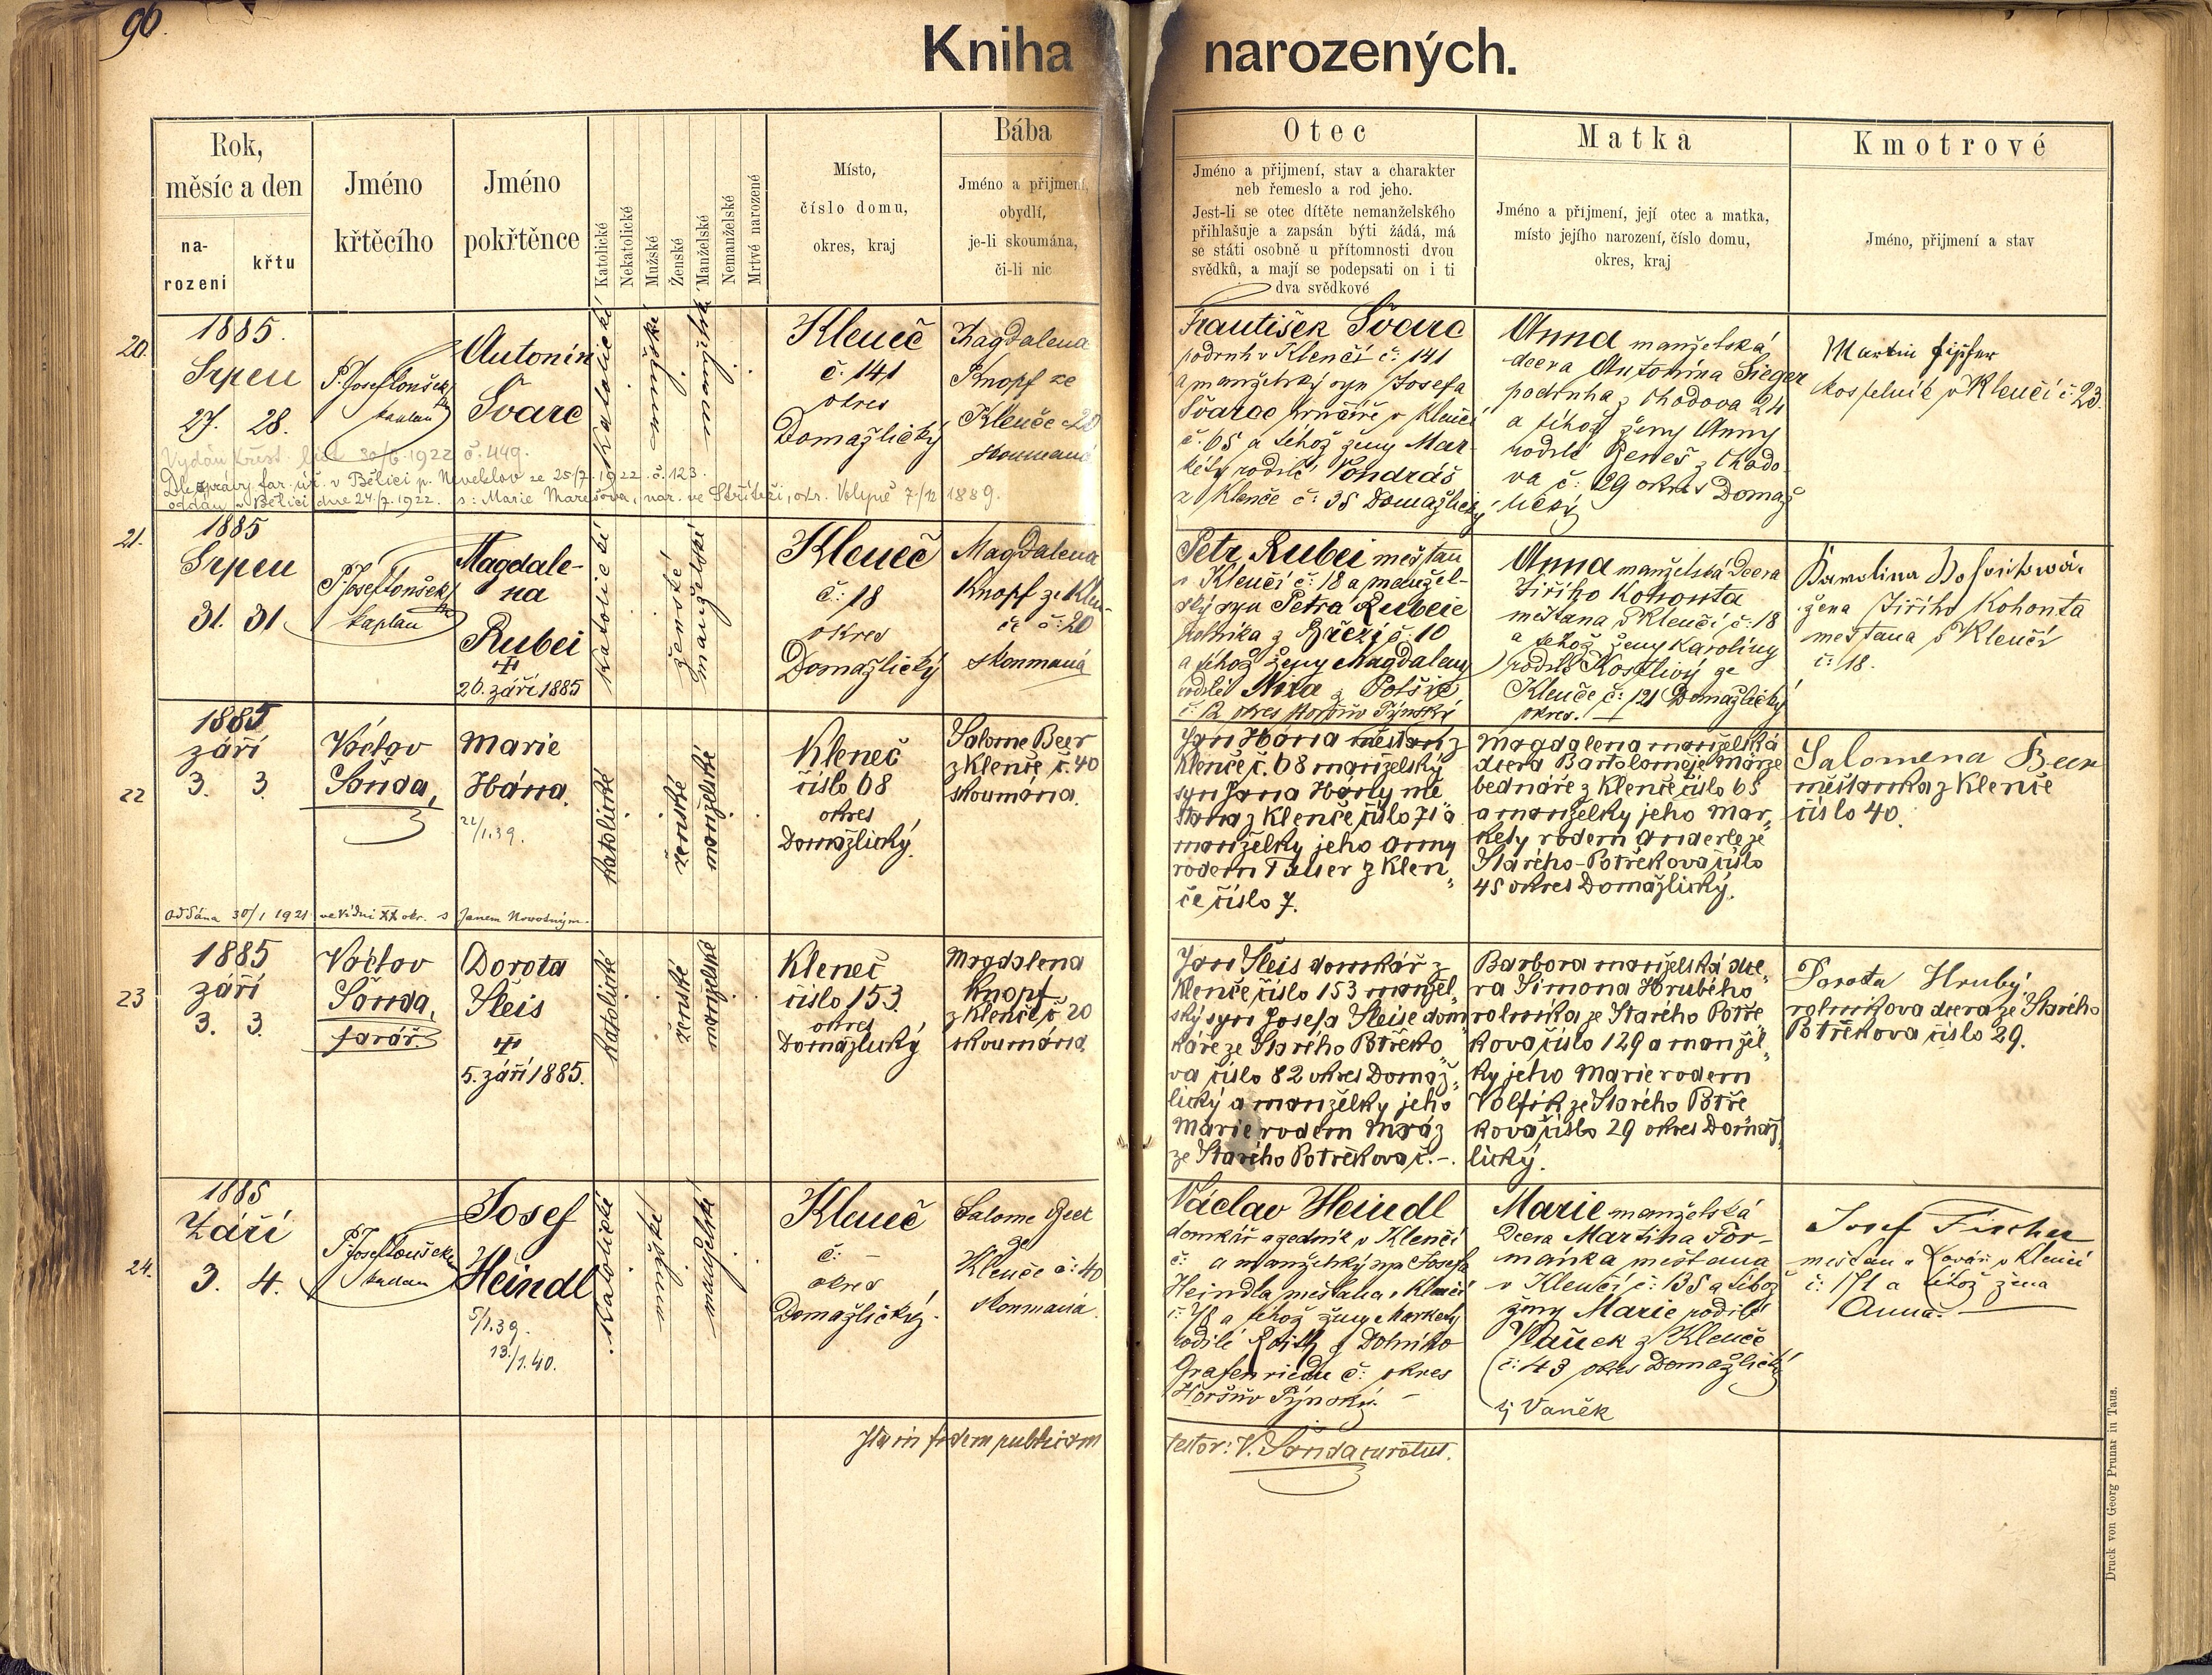 96.
Kniha narozených.
Rok,
měsíc a den
na-
rození
křtu
Jméno
křtěcího
Jméno
pokřtěnce
Katolické
Nekatolické
Mužské
Ženské
Manželské
Nemanželské
Mrtvé narozené
Místo,
číslo domu,
okres, kraj
Bába
Jméno a přijmení,
obydlí,
je-li skoumána,
či-li nic
Otec
Jméno a přijmení, stav a charakter
neb řemeslo a rod jeho.
Jest-li se otec dítěte nemanželského
přihlašuje a zapsán býti žádá, má
se státi osobně u přítomnosti dvou
svědků, a mají se podepsati on i ti
dva svědkové
Matka
Jméno a přijmení, její otec a matka,
místo jejího narození, číslo domu,
okres, kraj
Kmotrové
Jméno, přijmení a stav
20.
1885.
Srpen
27. 28.
P. Josef Loušek
kaplan
Antonín
Švarc
katolické
mužské
manželské
Kleneč
č. 141
okres
Domažlický
Magdalena
Knopf ze
Klenče č 20
skoumaná
František Švarc
podruh v Klenčí č. 141
a manželský syn Josefa
Švarce hrnčíře v Klenčí
č. 65 a téhož ženy Mar-
kéty rodilé Vondráš
z Klenče č: 35 Domažlický
Anna manželská
dcera Antonína Sieger
podruha z Chodova 24
a téhož ženy Anny
rodilé Beneš z Chodo-
va č: 29 okres Domaž-
lický
Martin Fišer
kostelník v Klenčí č. 23.
Vydán křest. list 30/6. 1922 č. 449.
Dle zprávy far. úř. v Bělici p. Neveklov ze 25/7. 1922. č. 123.
oddán v Bělici dne 24./7. 1922. s: Marie Marešova, nar. ve Stříteži, okr. Volyně 7/12 1889.
21.
1885
Srpen
31. 31
P. Josef Loušek
kaplan
Magdale-
na
Rubei
20. září 1885
katolické
ženské
manželské
Kleneč
č: 18
okres
Domažlický
Magdalena
Knopf ze Klen-
če č: 20
skoumaná
Petr Rubei mešťan
v Klenčí č: 18 a manžel-
ský syn Petra Rubeie
rolníka z Březí č: 10
a téhož ženy Magdaleny
rodilé
č: 12 okres Horšův Týnský
Anna manželská dcera
Jiřího Kohouta
mešťana v Klenčí č: 18
a téhož ženy Karoliny
rodilé Kostlivý ze
Klenče č: 121 Domažlický
okres.
Karolina
žena Jiřího Kohouta
mešťana v Klenčí
č: 18.
22
1885
září
3. 3.
Václav
Šanda,
Marie
Hána.
22/1.39.
katolické
ženské
manželské
Kleneč
číslo 68
okres
Domažlický.
Salome Beer
z Klenče č. 40
skoumána.
Jan Hána měšťan z
Klenče č. 68 manželský
syn Jana Hány mě
šťana z Klenče číslo 71 a
manželky jeho Anny
rodem Tauser z Klen„
če číslo 7.
Magdalena manželská
dcera Bartoloměje Märze
bednáře z Klenče číslo 65
a manželky jeho Mar„
kéty rodem Anderle ze
Starého-Potřekova číslo
45 okres Domažlický.
Salomena Beer
měšťanka z Klenče
číslo 40.
oddána 30/1 1921 ve Vídni XX okr. s Janem Novotným.
23
1885
září
3. 3.
Václav
Šanda,
farář.
Dorota
Šleis
5. září 1885.
katolické
ženské
manželské
Kleneč
číslo 153
okres
Domažlický
Magdalena
Knopf
z Klenče č 20
skoumána
Jan Šleis domkář z
Klenče číslo 153 manžel„
ský syn Josefa Šleise dom
káře ze Starého Potřeko„
va číslo 82 okres Domaž„
lický a manželky jeho
Marie rodem Mráz
ze Starého Potřekova č. -.
Barbora manželská dce„
ra Šimona Hrubého
rolníka ze Starého Potře„
kova číslo 129 a manžel„
ky jeho Marie rodem
Volfík ze Starého Potře
kova číslo 29 okres Domaž„
lický.
Dorota Hrubý
rolníkova dcera ze Starého
Potřekova číslo 29.
24.
1885
Září
3. 4.
P. Josef Loušek
kaplan
Josef
Heindl
5/1.39.
13./1.40.
katolické
mužské
manželské
Kleneč
č: –
okres
Domažlický.
Salome Beer
ze
Klenče č: 40
skoumaná.
Václav Heindl
domkář a zedník v Klenčí
č: a manželský syn Josefa
Heindla mešťana v Klenčí
č: 78 a téhož ženy Markety
rodilé z Dolního
Grafenriedu č: okres
Horšův Týnský. –
Marie manželská
dcera Martina For-
mánka mešťana
v Klenčí č: 135 a téhož
ženy Marie rodilé
Vaněk z Klenče
č: 43 okres Domažlický
tj Vaněk
Josef Fischer
mešťan a kovář v Klenčí
č: 171 a téhož žena
Anna.
Ita in fidem publicam
testor: V. Šanda curatus.
Druck von Georg Prunar in Taus.